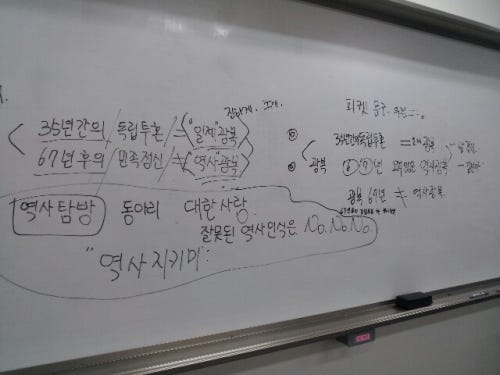 진하게. 크게.
35년간의 / 독립투혼 / = "일제" 광복
67년 후의 / 민족정신 / ≠ "역사광복"
역사탐방 동아리 대한사랑
잘못된 역사인식은 No. No. No.
"역사지키미"
피켓 문구
35년간의 독립투혼 =
광복 67년 역사광복
광복 67년 ≠ 역사광복